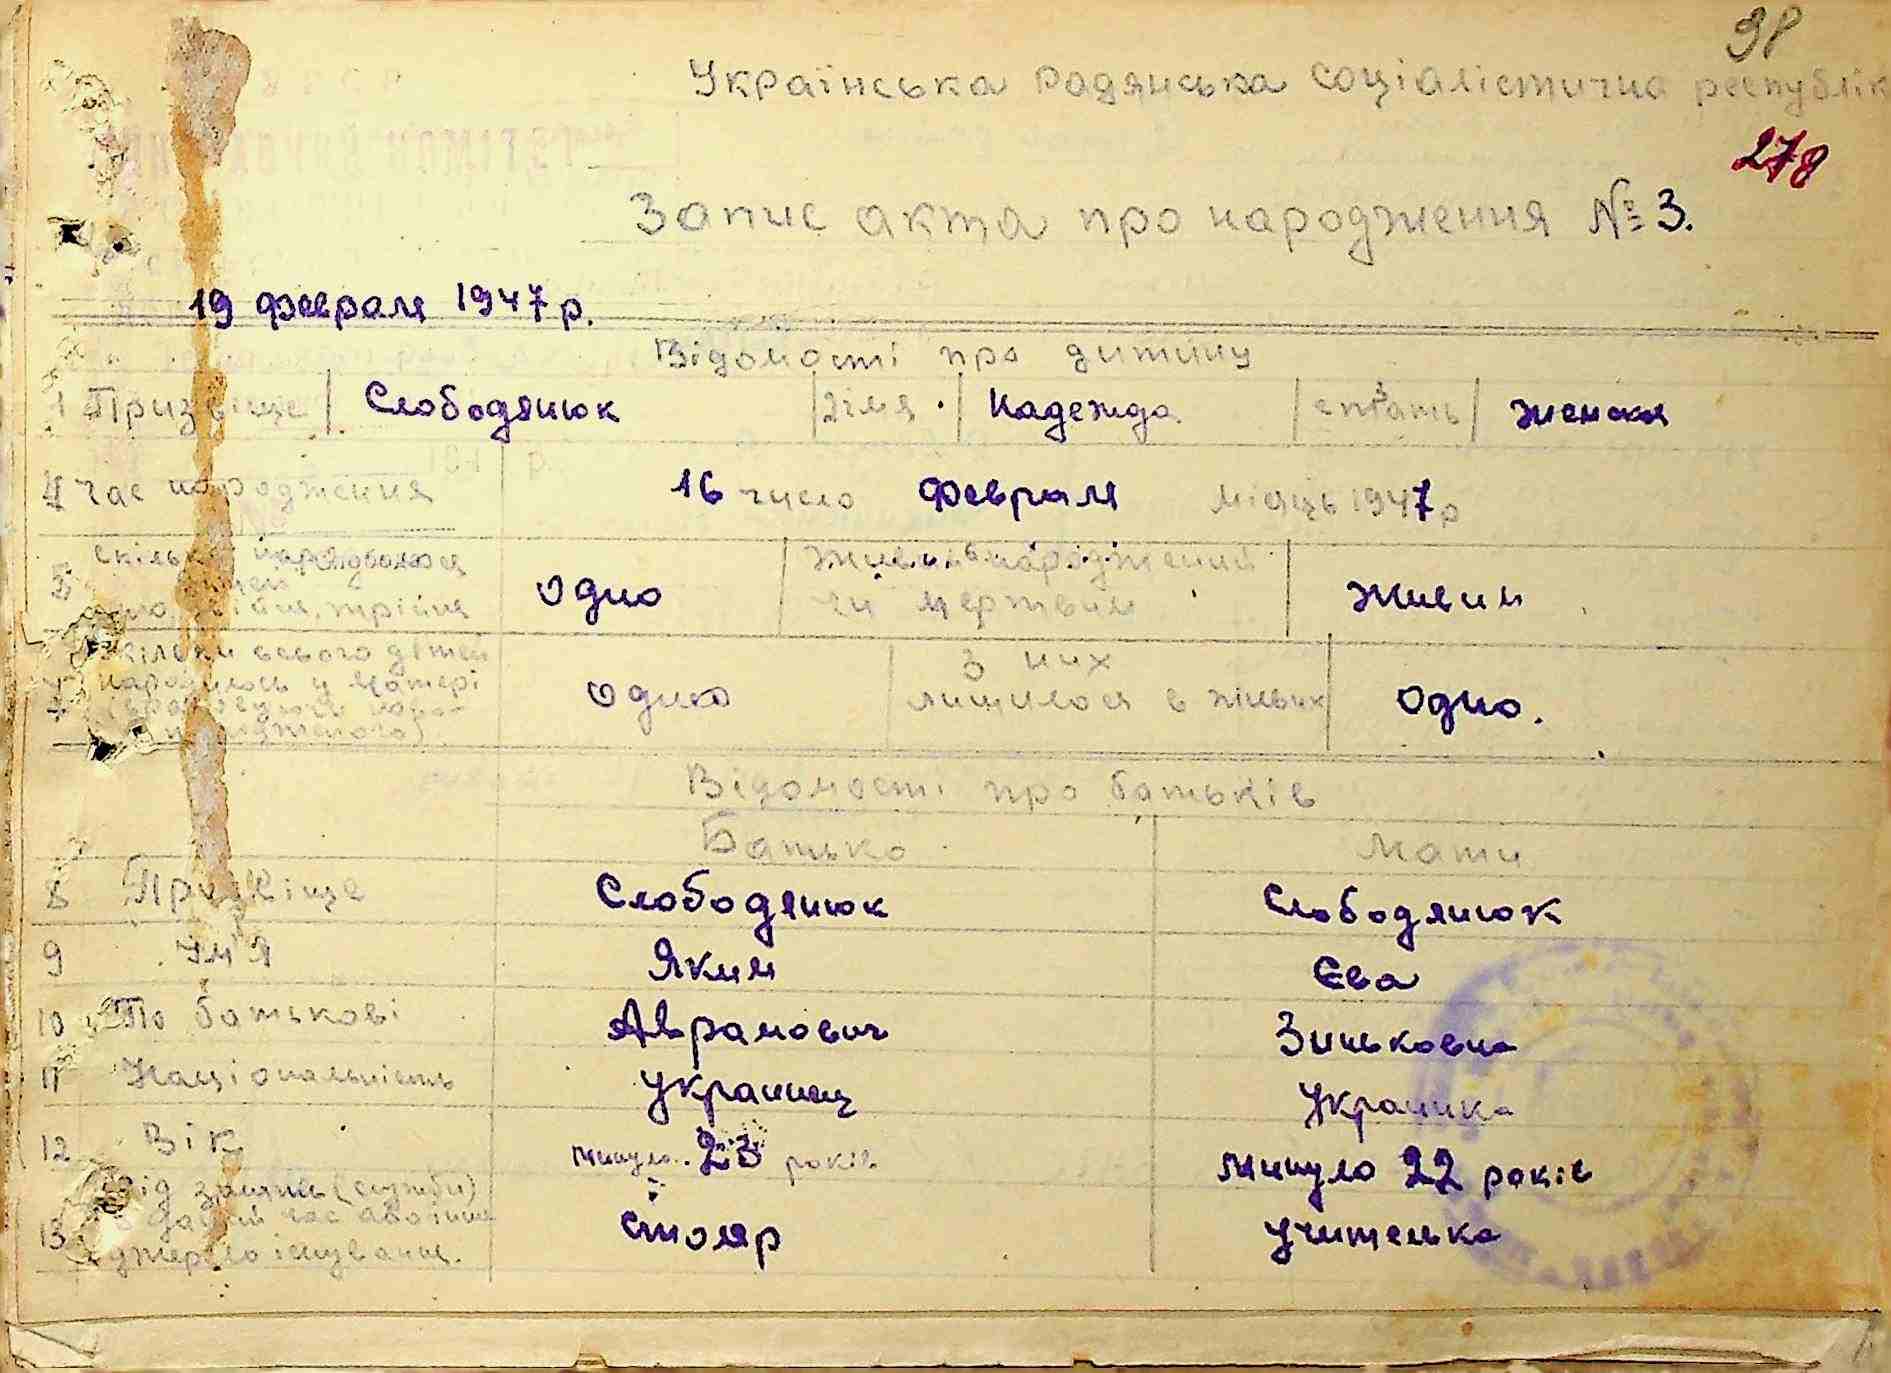 98
Українська радянська соціалістична республік
278
Запис акта про народження № 3.
19 февраля 1947 р.
Відомості про дитину
1 Призвіще Слободянюк 2 імя Надежда 3 стать женская
4 Час народження 16 число февраля місяць 1947 р
5 скільки народилося одно живим народжений живим
чи мертвим
скільки всього дітей одно з них одно.
народилось у матері лишилося в живих
Відомості про батьків
Батько Мати
8 Призвіще Слободянюк Слободянюк
9 Імя Яким Єва
10 По батькові Аврамович Зиньковна
11 Національність украинец Украинка
12 Вік минуло 23 років минуло 22 років
13 Рід занять (служби) столяр учителька
в даний час або інше
джерело існування.